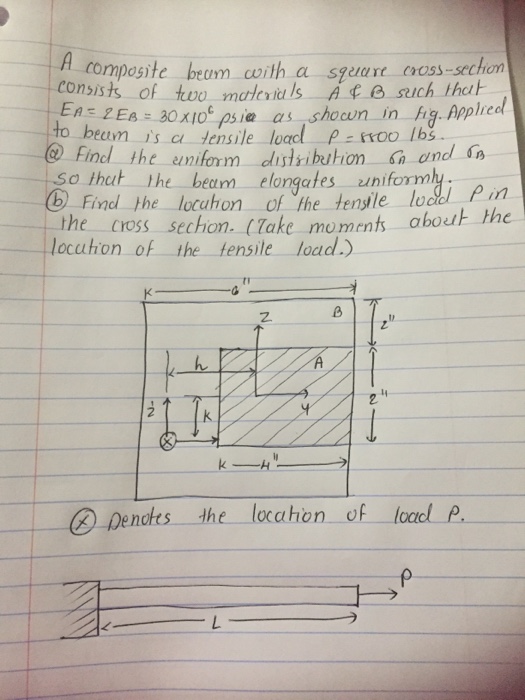 A composite beam with a square cross-section
consists of two materials A & B such that
EA = 2EB = 30x10⁶ psi as shown in fig. Applied
to beam is a tensile load P = lbs.
(a) Find the uniform distribution σA and σB
so that the beam elongates uniformly.
(b) Find the location of the tensile load P in
the cross section. (Take moments about the
location of the tensile load.)
6"
B
2"
Z
h
A
2"
K
y
4"
(x) Denotes the location of load P.
P
L